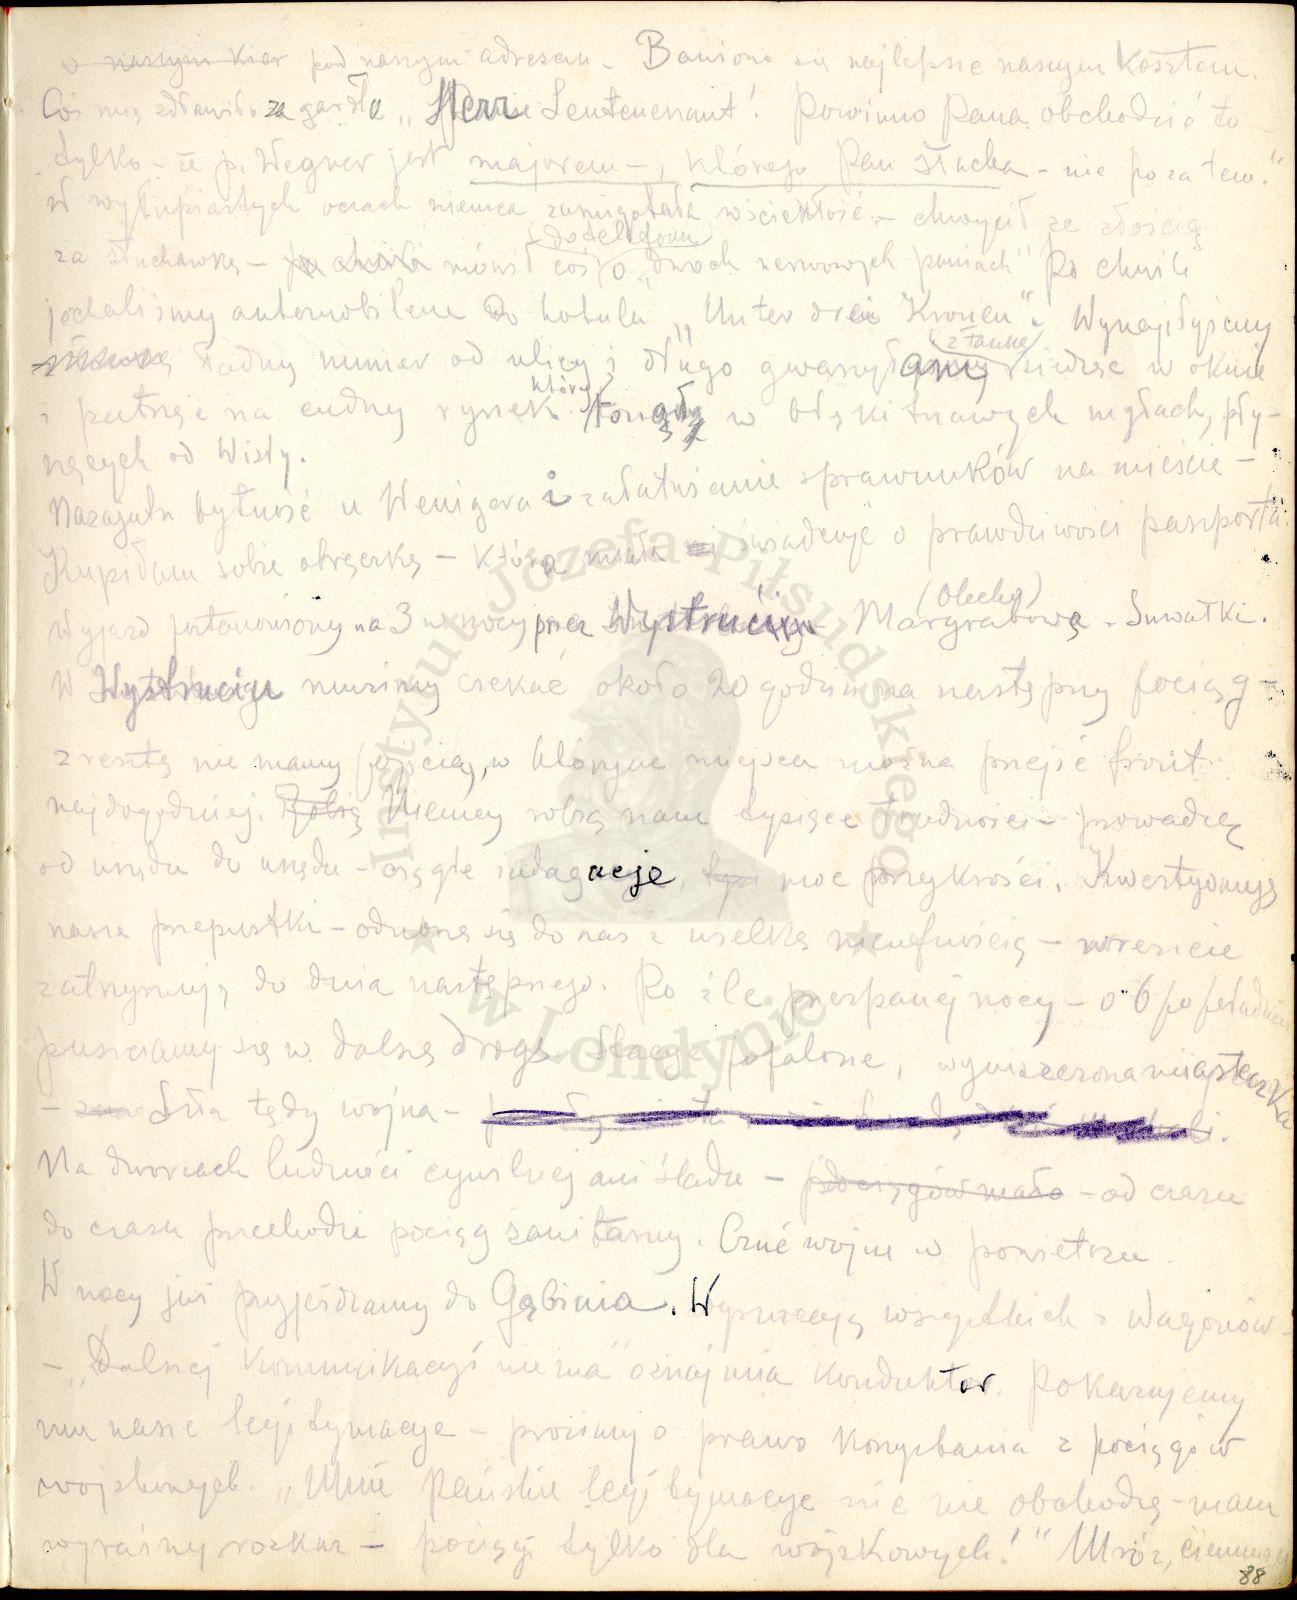 w naszym kier pod naszym adresem – Bawiono się najlepiej naszym kosztem.
Coś mię zdławiło za gardło „Herr Leutenenant! Powinno Pana obchodzić to
tylko – że p. Wegner jest majorem –, którego Pan słucha – nie poza tem."
W wyłupiastych oczach niemca zamigotała wściekłość – chwycił ze złością
za słuchawkę – po chwili mówił coś (do telefonu) o „dwoch nerwowych paniach" Po chwili
jechaliśmy automobilem do hotelu „Unter drei Kronen". Wynajęłyśmy
ładny numer od ulicy i długo gwarzyłyśmy (z Tauką) siedząc w oknie
i patrząc na cudny rynek który tonął w błękitnawych mgłach, pły-
nących od Wisły.
Nazajutrz bytność u Wenigera i załatwianie sprawunków na mieście –
Kupiłam sobie obrączkę – która miała świadczyć o prawdziwości paszportu.
Wyjazd postanowiony na 3 w nocy przez Wystruć – Margrabową (Olecko) – Suwałki.
W Wystruciu musimy czekać około 20 godzin na następny pociąg –
zresztą nie mamy pojęcia, w którym miejscu można przejść front
najdogodniej. Robią Niemcy robią nam tysiące trudności – prowadzą
od urzędu do urzędu – ciągłe indagacje, moc przykrości. Kwestyonują
nasze przepustki – odnoszą się do nas z wielką nieufnością – wreszcie
zatrzymują do dnia następnego. Po źle przespanej nocy – o 6 po południu
puszczamy się w dalszą drogę. Stacye popalone, wyniszczone miasteczka
– Szła tędy wojna –
Na dworcach ludności cywilnej ani śladu – pociągów mało – od czasu
do czasu przechodzi pociąg sanitarny. Czuć wojnę w powietrzu.
W nocy już przyjeżdżamy do Gąbinia. Wyrzucają wszystkich z wagonów –
– „Dalszej komunikacyi niema" oznajmia konduktor. Pokazujemy
mu nasze legitymacye – prosimy o prawo korzystania z pociągów
wojskowych. „Mnie Pańskie legitymacye nic nie obchodzą – mam
wyraźny rozkaz – pociągi tylko dla wojskowych!" Mróz, ciemności
88
Instytut Józefa Piłsudskiego
w Londynie